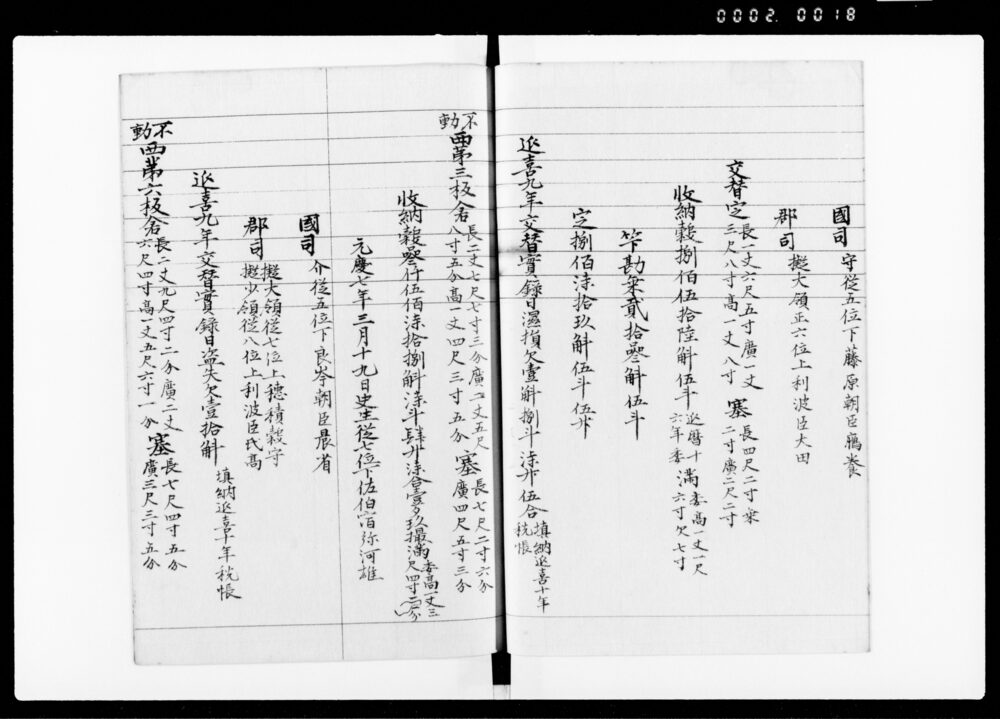 0002. 0018
國司 守從五位下藤原朝臣鴈養
郡司 擬大領正六位上利波臣大田
交替定 長一丈六尺五寸廣一丈
三尺八寸高一丈八寸 塞 長四尺二寸乗
二寸廣二尺二寸
收納穀捌佰伍拾陸斛伍斗 延暦十
六年委 滿 委高一丈一尺
六寸欠七寸
竿勘乗貳拾叄斛伍斗
定捌佰柒拾玖斛伍斗伍升
延喜九年交替實錄日濕損欠壹斛捌斗柒升伍合 填納延喜十年
税帳
不動 西第三板倉 長二丈七尺七寸三分廣二丈五尺
八寸五分高一丈四尺三寸五分 塞 長七尺二寸六分
廣四尺五寸三分
收納穀叄仟伍佰柒拾捌斛柒斗肆升柒合壹夕玖撮 滿 委高一丈三
尺四寸二分
元慶七年三月十九日史生從七位下佐伯宿祢河雄
國司 介從五位下良岑朝臣晨省
郡司 擬大領從七位上穗積穀守
擬少領從八位上利波臣氏高
延喜九年交替實錄日盗失欠壹拾斛 填納延喜十年税帳
不動 西第六板倉 長二丈九尺四寸二分廣二丈
六尺四寸高一丈五尺六寸一分 塞 長七尺四寸五分
廣三尺三寸五分